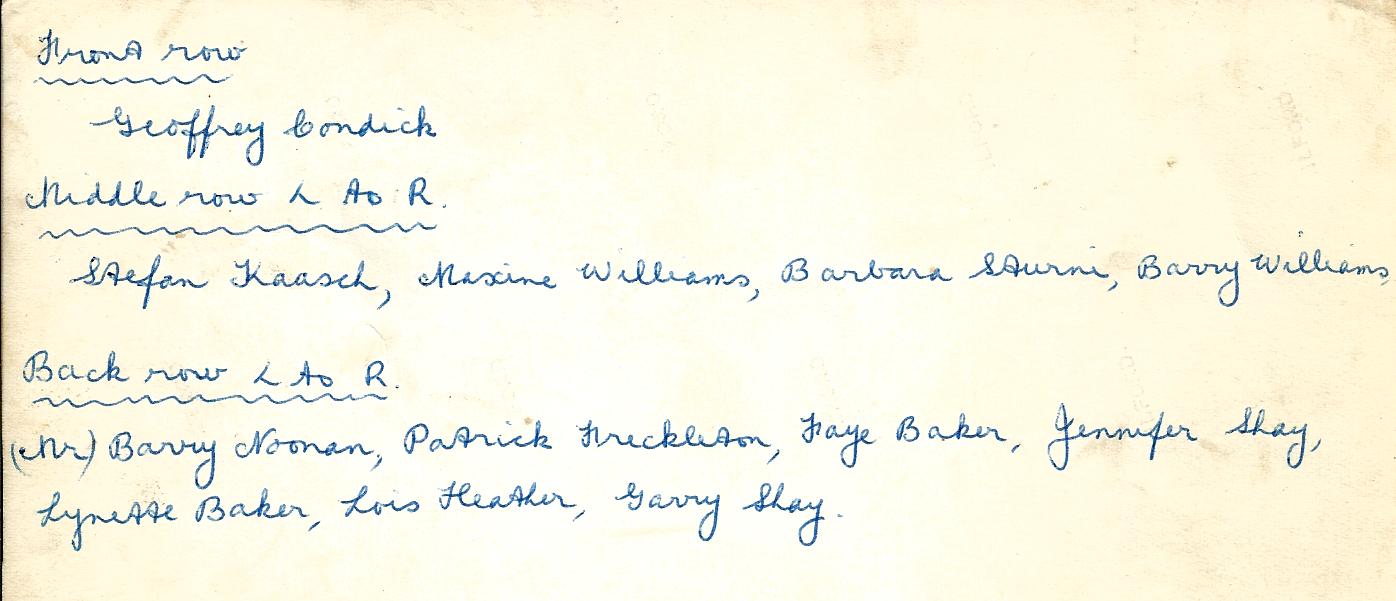 Front row
Geoffrey Condick
Middle row L to R.
Stefan Kaasch, Maxine Williams, Barbara Sturni, Barry Williams,
Back row L to R.
(Mr) Barry Noonan, Patrick Freckleton, Faye Baker, Jennifer Shay,
Lynette Baker, Lois Heather, Garry Shay.